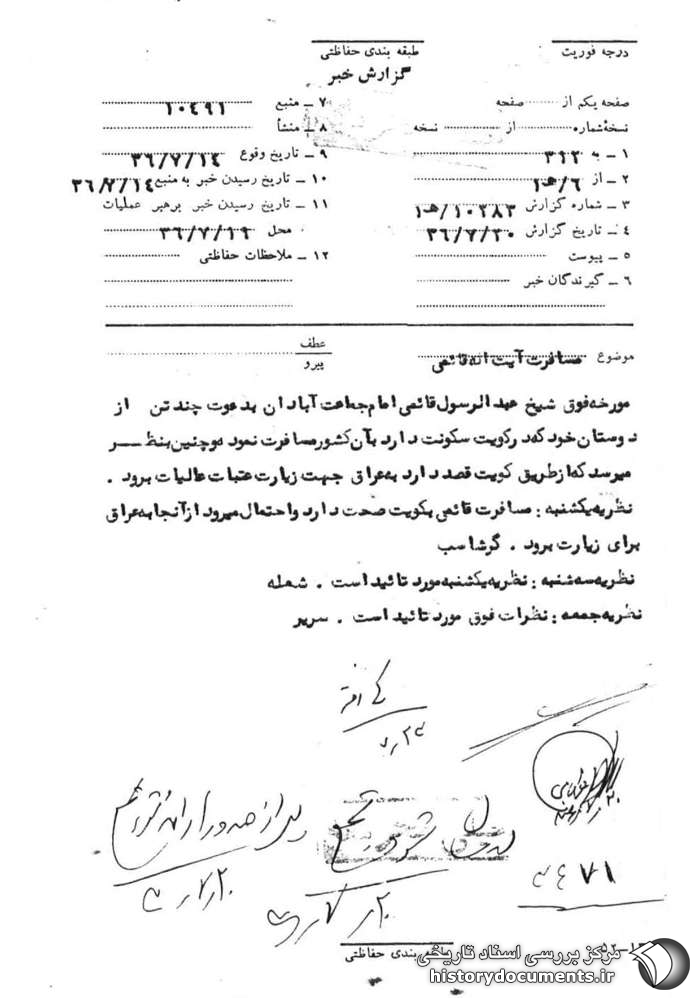 درجه فوریت
طبقه بندی حفاظتی
گزارش خبر
صفحه یکم از صفحه
نسخهٔ شماره از نسخه
۱ – به ۳۱۲
۲ – از ۶/هـ۱
۳ – شماره گزارش ۱۰۲۸۳/هـ۱
۴ – تاریخ گزارش ۳۶/۷/۲۰
۵ – پیوست
۶ – گیرندگان خبر
۷ – منبع ۱۰۴۹۱
۸ – منشأ
۹ – تاریخ وقوع ۳۶/۷/۱۴
۱۰ – تاریخ رسیدن خبر به منبع ۳۶/۷/۱۴
۱۱ – تاریخ رسیدن خبر برهبر عملیات
محل ۳۶/۷/۱۹
۱۲ – ملاحظات حفاظتی
موضوع مسافرت آیت اله قائمی
عطف
پیرو
مورخه فوق شیخ عبدالرسول قائمی امام جماعت آبادان بدعوت چند تن از
دوستان خود که در کویت سکونت دارد بآن کشور مسافرت نمود و چنین بنظر
میرسد که از طریق کویت قصد دارد به عراق جهت زیارت عتبات عالیات برود .
نظریه یکشنبه : مسافرت قائمی بکویت صحت دارد و احتمال میرود از آنجا به عراق
برای زیارت برود . گرشاسب
نظریه سه شنبه : نظریه یکشنبه مورد تائید است . شعله
نظریه جمعه : نظرات فوق مورد تائید است . سریر
۲۰ر۷ر
۲۰ر۷ر
طبقه بندی حفاظتی
مرکز بررسی اسناد تاریخی
historydocuments.ir